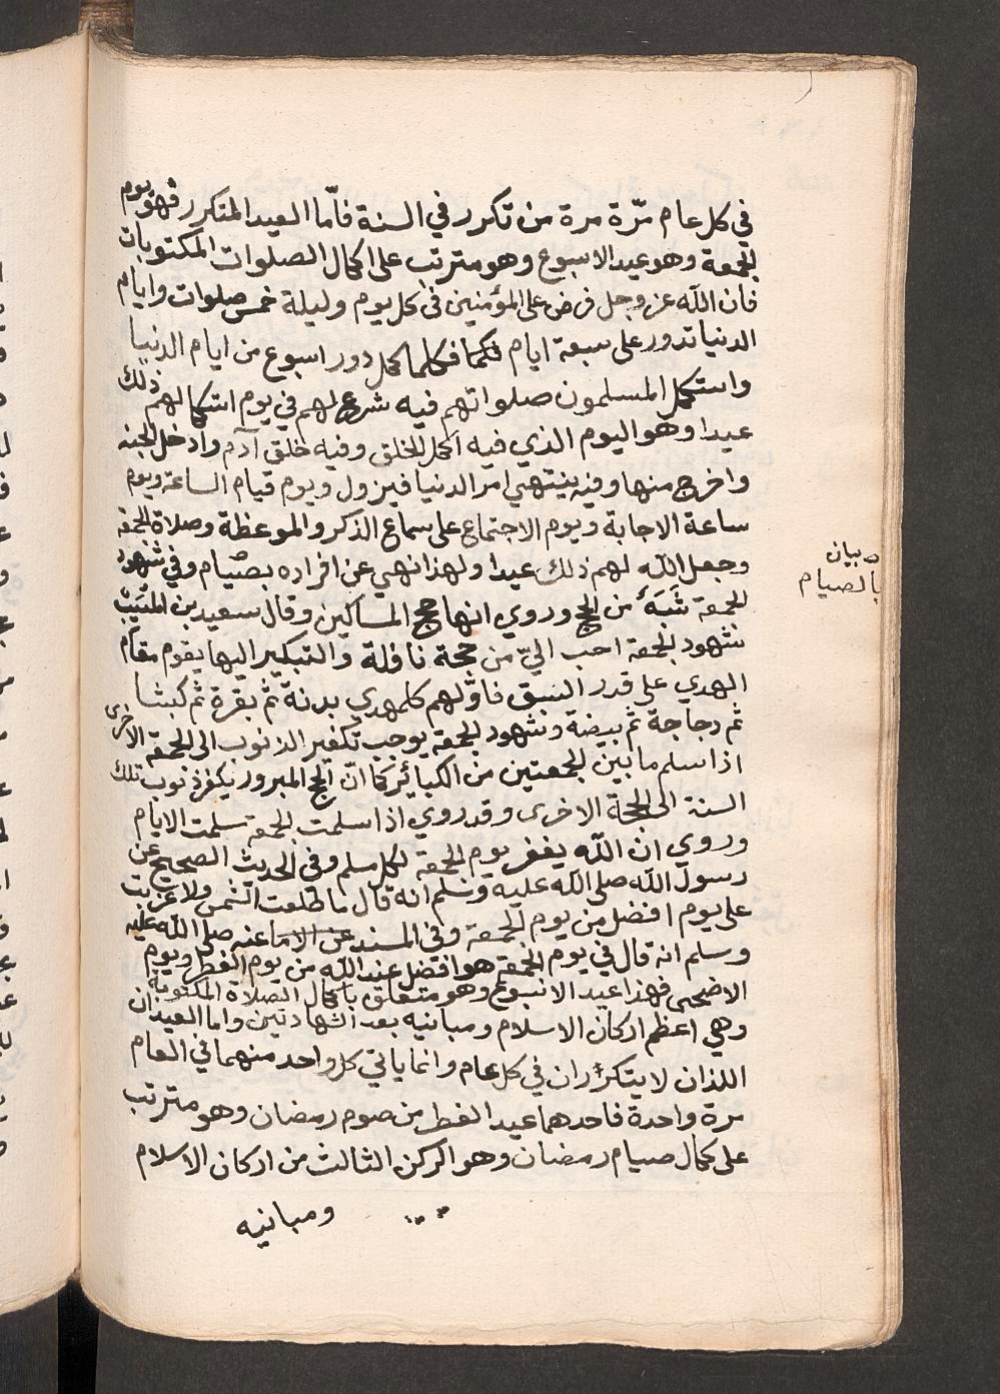 في كل عام مرّة مرة من تكرر في السنة فأمّا العيد المتكرر فهو يوم
الجمعة وهو عيد الاسبوع وهو مترتب على اكمال الصلوات المكتوبات
فان الله عز وجل فرض على المؤمنين في كل يوم وليلة خمس صلوات وايام
الدنيا تدور على سبعة ايام فكلما كمل دور اسبوع من ايام الدنيا
واستكمل المسلمون صلواتهم فيه شرع لهم في يوم استكمالهم ذلك
عيدا وهو اليوم الذي فيه اكمل الخلق وفيه خلق آدم وادخل الجنة
واخرج منها وفيه ينتهي امر الدنيا فيزول ويوم قيام الساعة ويوم
ساعة الاجابة ويوم الاجتماع على سماع الذكر والموعظة وصلاة الجمعة
وجعل الله لهم ذلك عيدا ولهذا نهي عن افراده بصيام وفي شهود
الجمعة شَبَهٌ من الحج وروي انها حج المساكين وقال سعيد بن المسَيّبْ
شهود الجمعة احب اليّ من حجة نافلة والتبكير اليها يقوم مقام
الهدي على قدر السبق فاوّلهم كالمهدي بدنة ثم بقرة ثم كبشا
ثم دجاجة ثم بيضة وشهود الجمعة يوجب تكفير الذنوب الى الجمعة الاخرى
اذا سلم ما بين الجمعتين من الكبائر كما انّ الحج المبرور يكفر ذنوب تلك
السنة الى الحجة الاخرى وقد روي اذا سلمت الجمعة سلمت الايام
وروي ان الله يغفر يوم الجمعة لكل مسلم وفي الحديث الصحيح عن
رسول الله صلى الله عليه وسلم انه قال ما طلعت الشمس ولا غربت
على يوم افضل من يوم الجمعة وفي المسند عن الاما عنه صلى الله عليه
وسلم انه قال في يوم الجمعة هو افضل عند الله من يوم الفطر ويوم
الاضحى فهذا عيد الاسبوع وهو متعلق باكمال الصلاة المكتوبة
وهي اعظم اركان الاسلام ومبانيه بعد الشهادتين واما العيدان
اللذان لا يتكرّران في كل عام وانما ياتي كل واحد منهما في العام
مرة واحدة فاحدهما عيد الفطر من صوم رمضان وهو مترتب
على كمال صيام رمضان وهو الركن الثالث من اركان الاسلام
ومبانيه
بيان
بالصيام